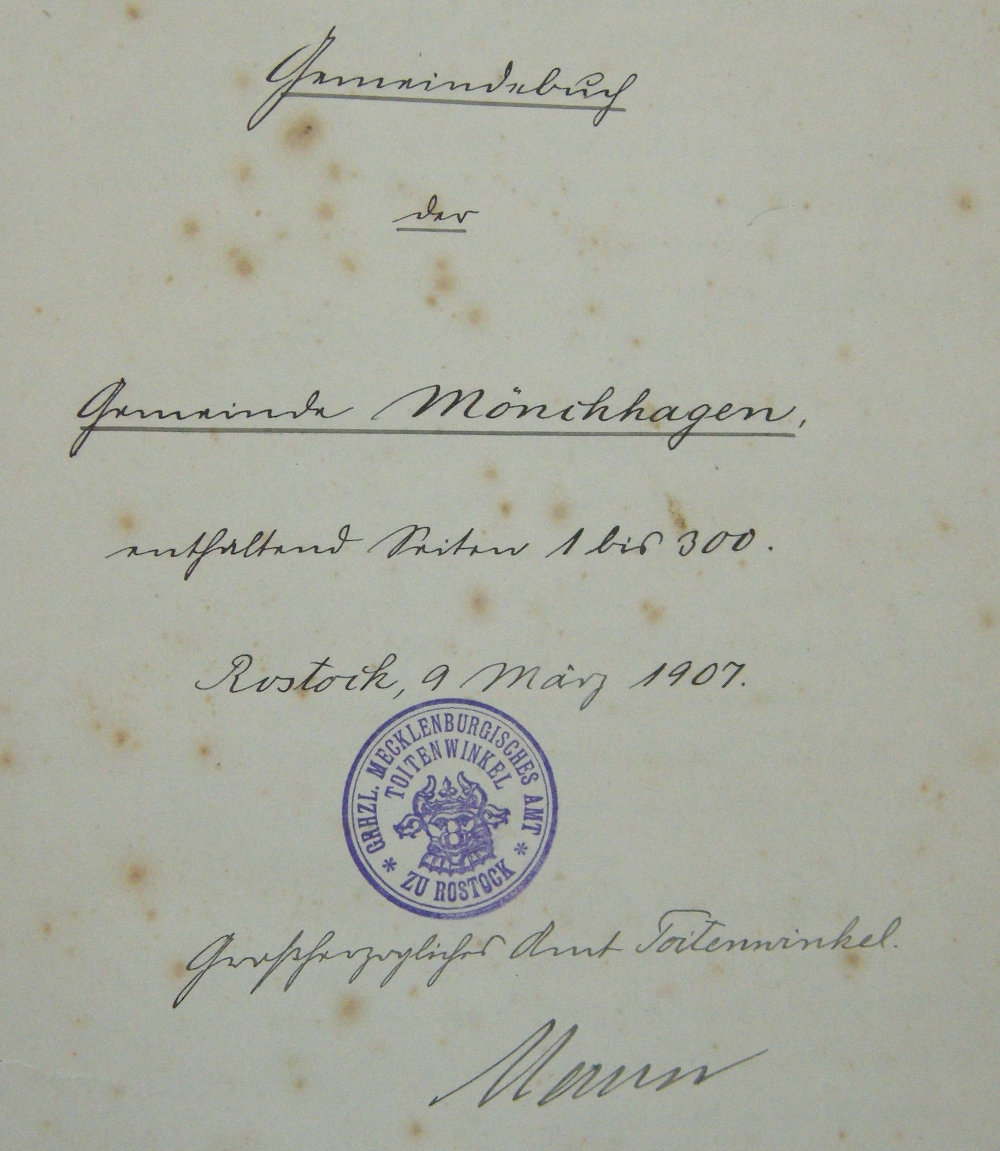 Gemeindebuch
der
Gemeinde Mönchhagen,
enthaltend Seiten 1 bis 300.
Rostock, 9 März 1907.
GRHZL. MECKLENBURGISCHES AMT
TOITENWINKEL
* ZU ROSTOCK *
Großherzogliches Amt Toitenwinkel.